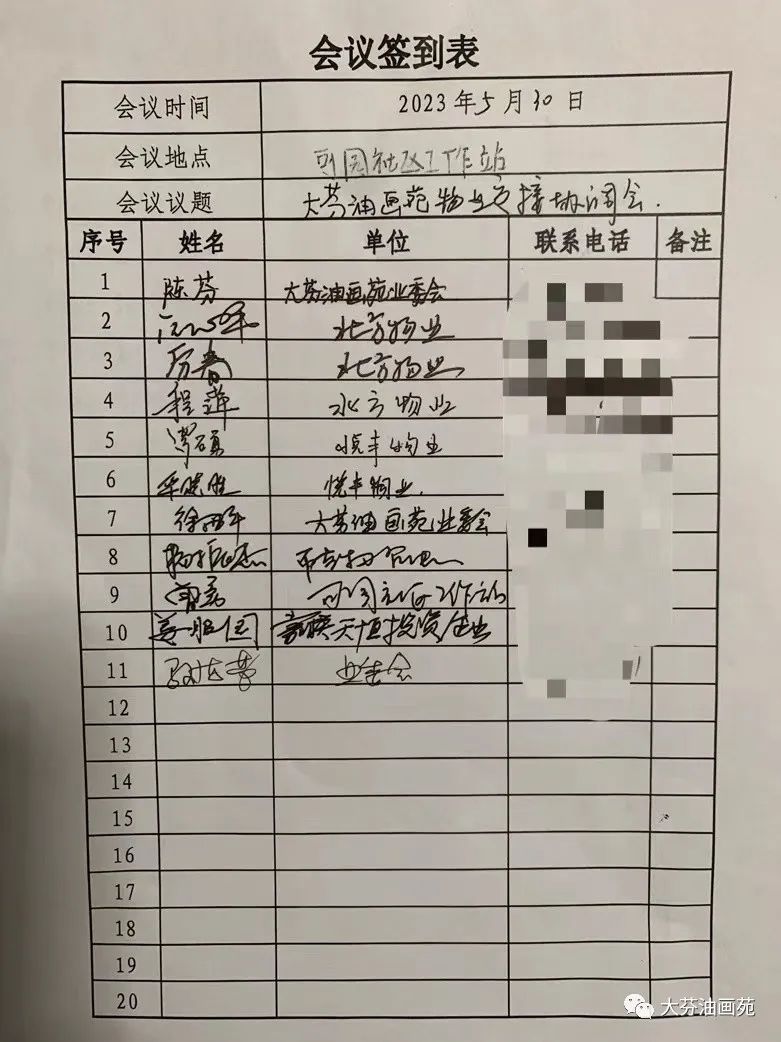 会议签到表
会议时间 2023年5月30日
会议地点 可园社区工作站
会议议题 大芬油画苑物业交接协调会.
序号 姓名 单位 联系电话 备注
1 陈芬 大芬油画苑业委会
2 北方物业
3 历春 北方物业
4 程萍 北方物业
5 悦丰物业
6 悦丰物业.
7 大芬油画苑业委会
8
9 可园社区工作站
10 姜胜国 天恒投资企业
11 业委会
12
13
14
15
16
17
18
19
20
大芬油画苑